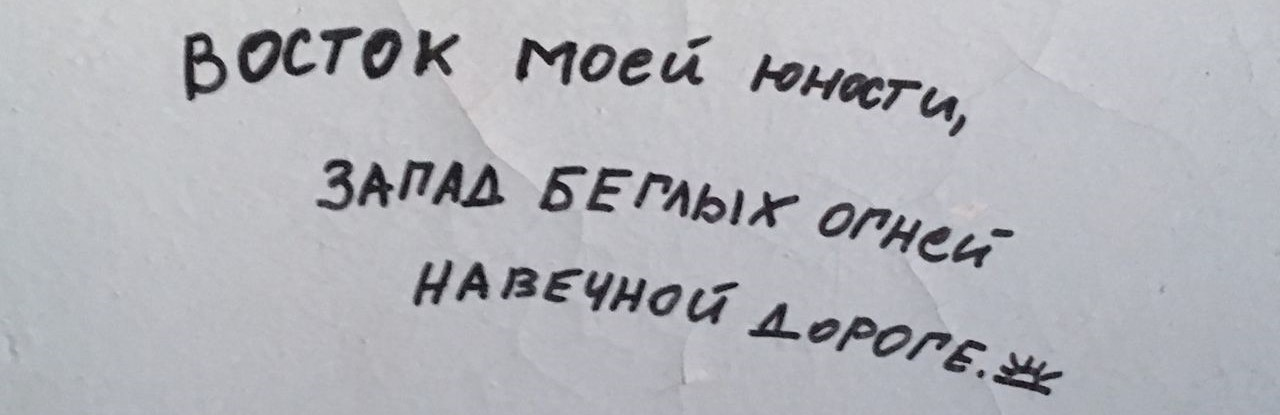 ВОСТОК моей юности,
ЗАПАД БЕГЛЫХ огней
НАВЕЧНОЙ ДОРОГЕ.